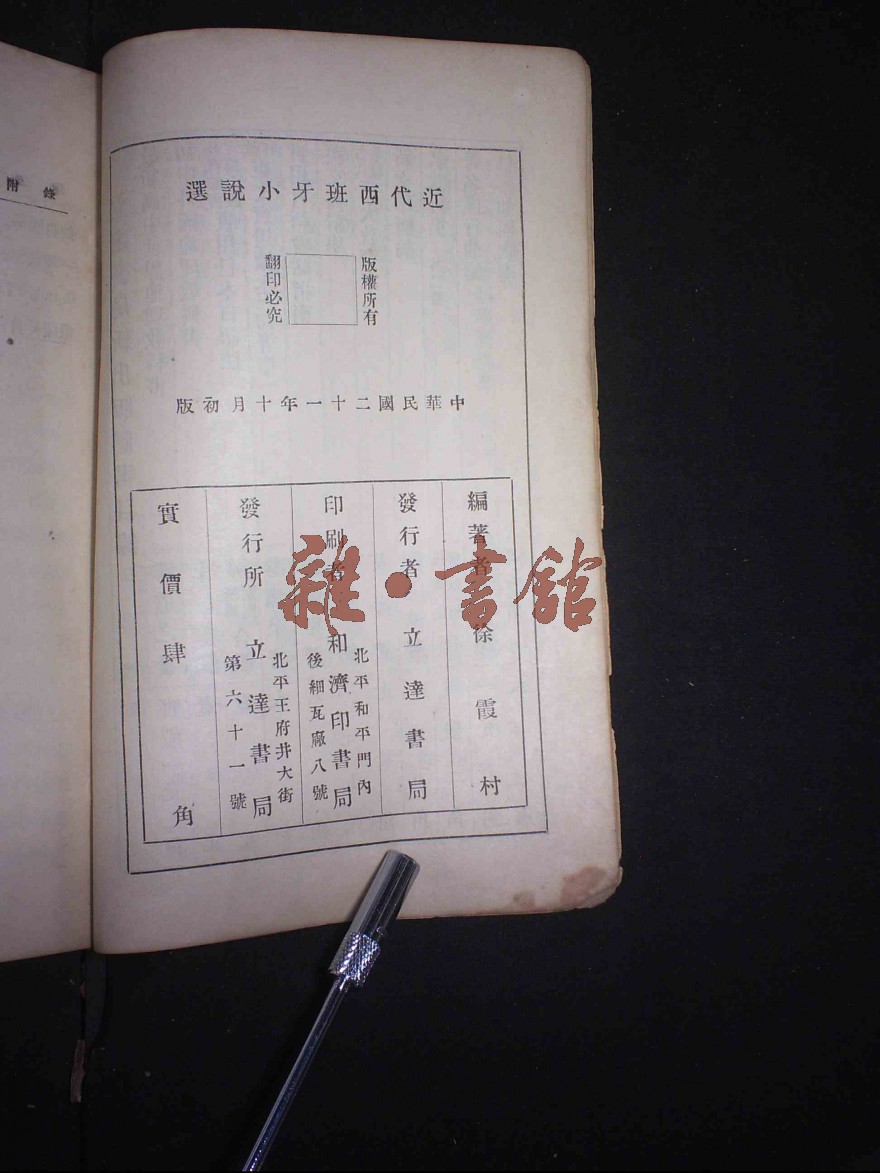 近代西班牙小說選
版權所有
翻印必究
中華民國二十一年十月初版
編著者 徐霞村
發行者 立達書局
印刷者 和濟印書局
北平和平門內
後細瓦廠八號
發行所 立達書局
北平王府井大街
第六十一號
實價肆角
附錄
雜·書館